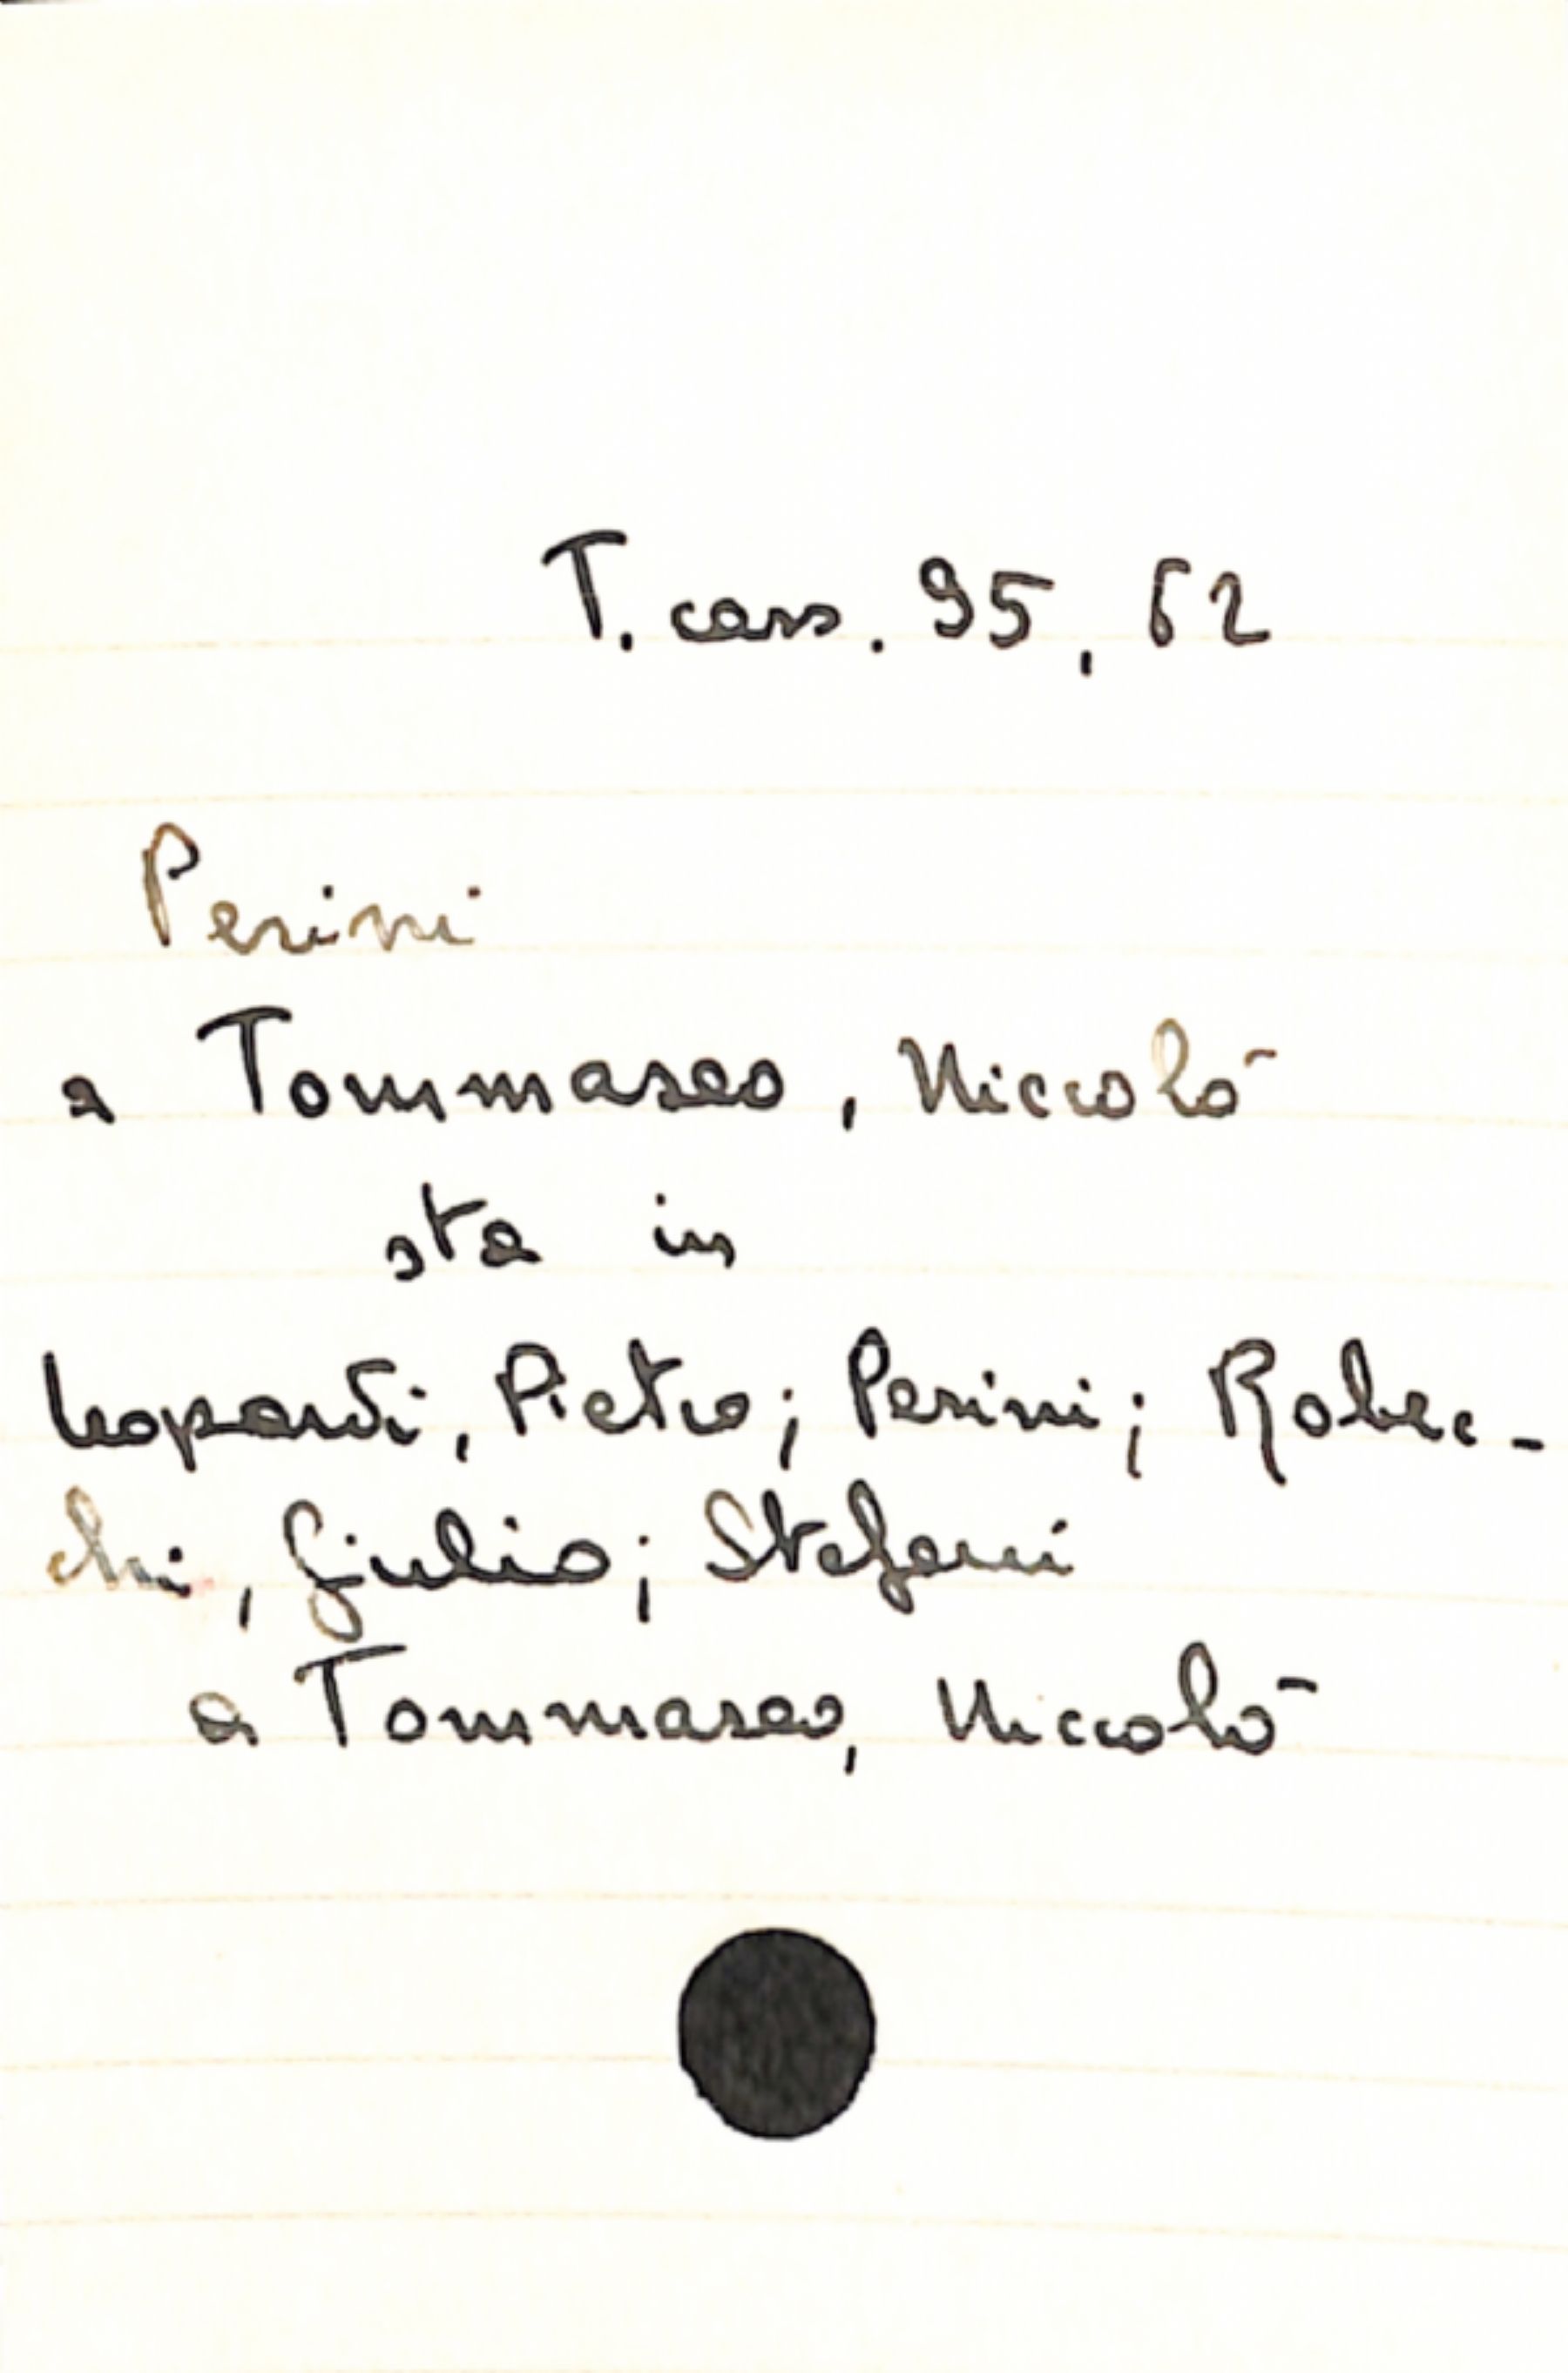 T. cass. 95, 62
Perini
a Tommaseo, Niccolò
sta in
Leopardi, Pietro; Perini; Robec-
chi, Giulio; Stefani
a Tommaseo, Niccolò